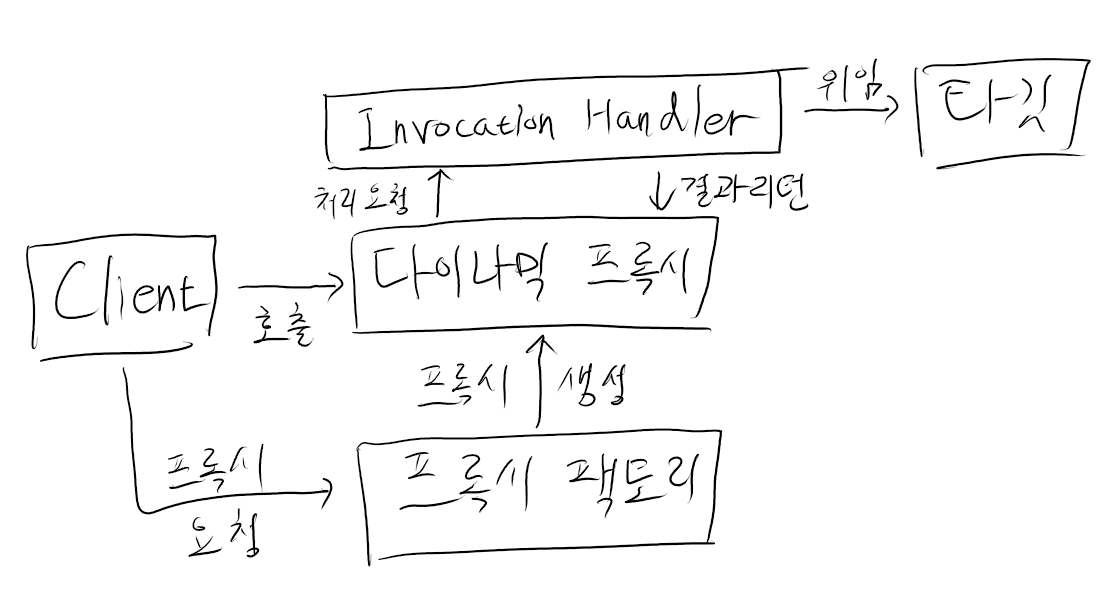 Invocation Handler
위임
타깃
처리 요청
결과리턴
Client
호출
다이나믹 프록시
프록시 생성
프록시
요청
프록시 팩토리